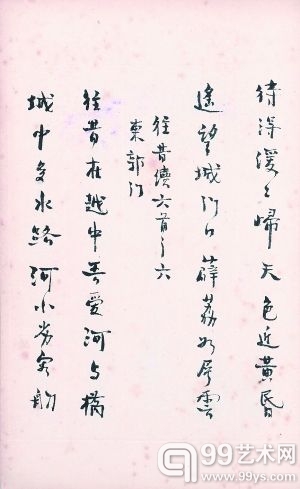 待得缓缓歸天色近黄昏
遥望城门口薜荔如雲
往昔續六首之六
東郭门
往昔在越中吾爱河与橋
城中多水路河小劣容舠
99艺术网
www.99ys.com